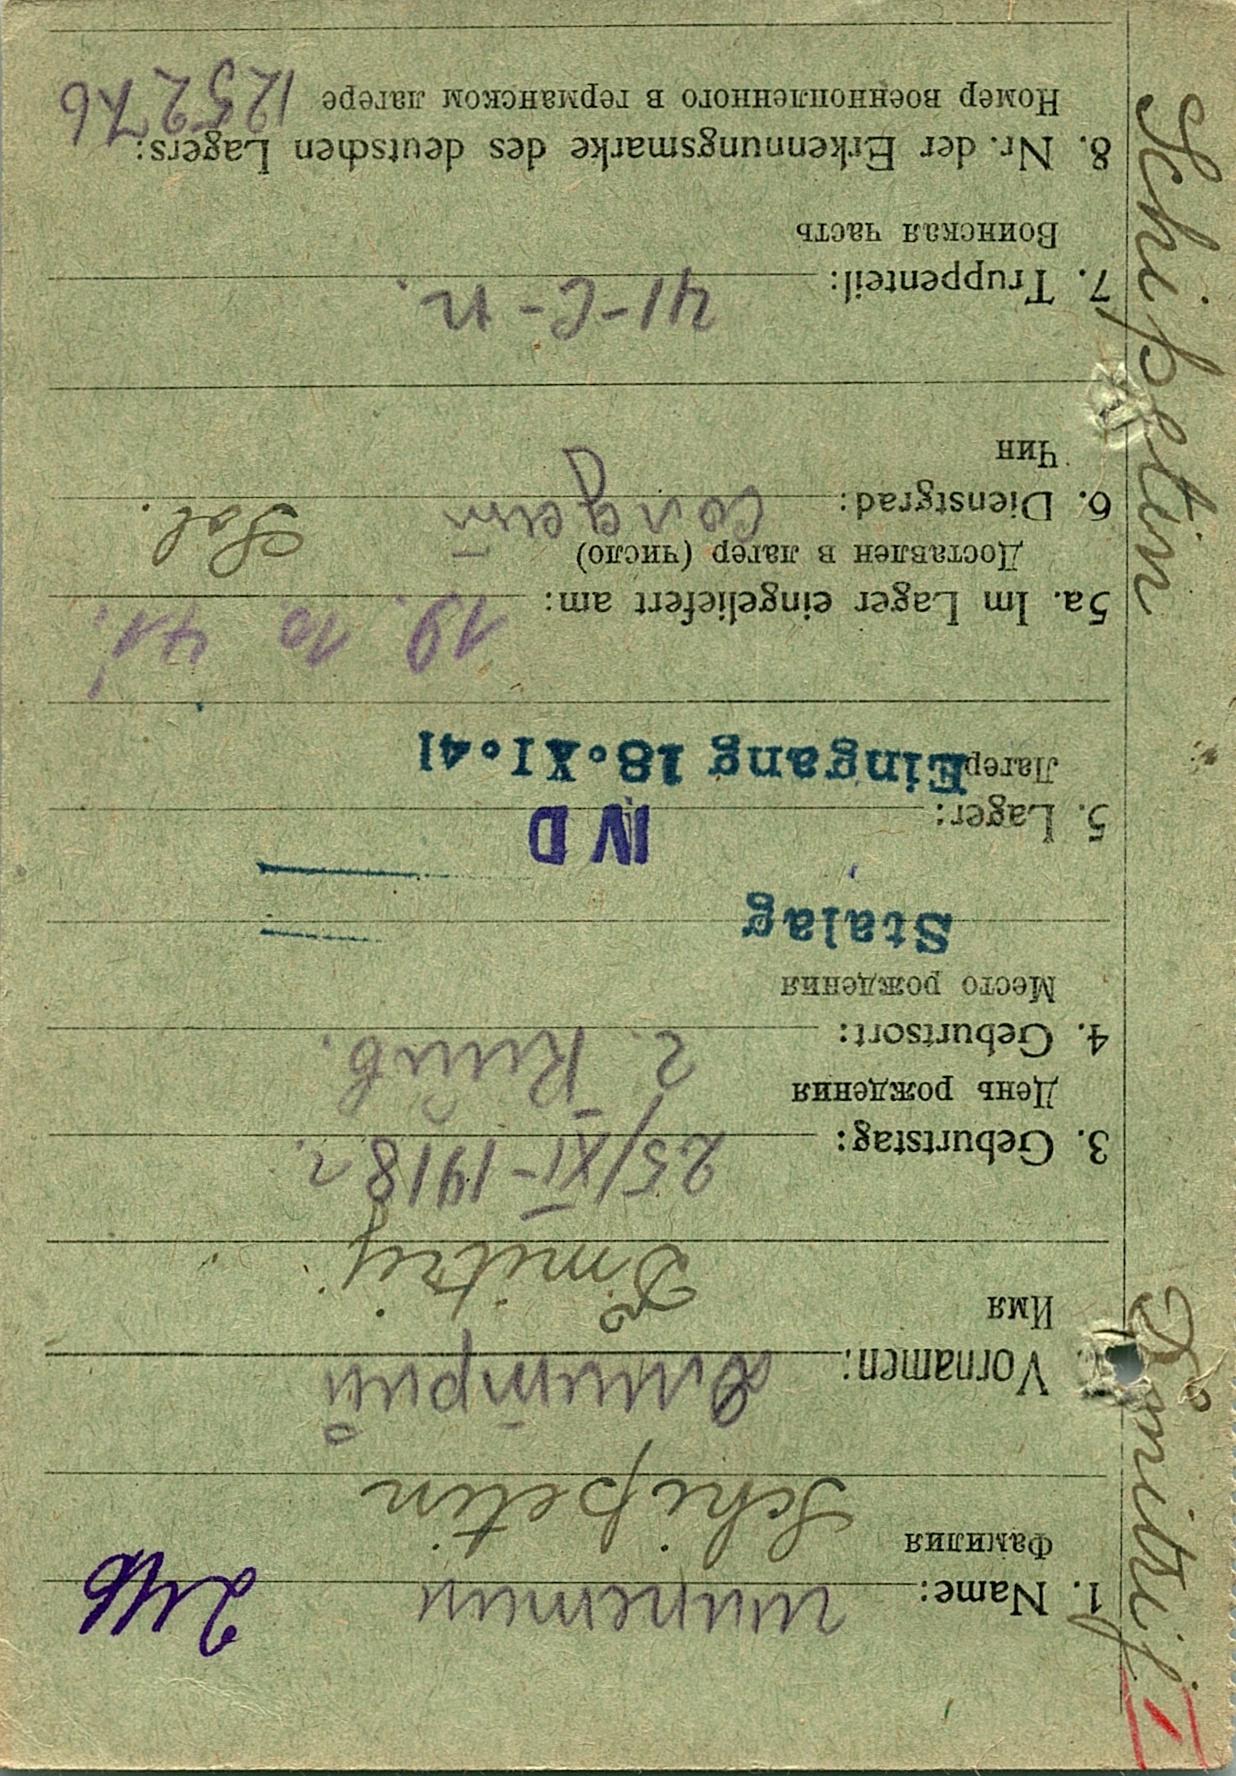 1. Name: Шипетин
Фамилия
Schipetin
Vornamen: Дмитрий
Имя
Dmitrij
3. Geburtstag: 25/XI-1918 г.
День рождения
4. Geburtsort: г. Киев.
Место рождения
Stalag
IV D
5. Lager:
Лагерь
Eingang 18·XI·41
5a. Im Lager eingeliefert am: 19. 10. 41.
Доставлен в лагер (число)
6. Dienstgrad: Солдат Sol.
Чин
7. Truppenteil: 41-С-п.
Воинская часть
8. Nr. der Erkennungsmarke des deutschen Lagers:
Номер военнопленного в германском лагере 125276
Schipetin Dmitrij
I